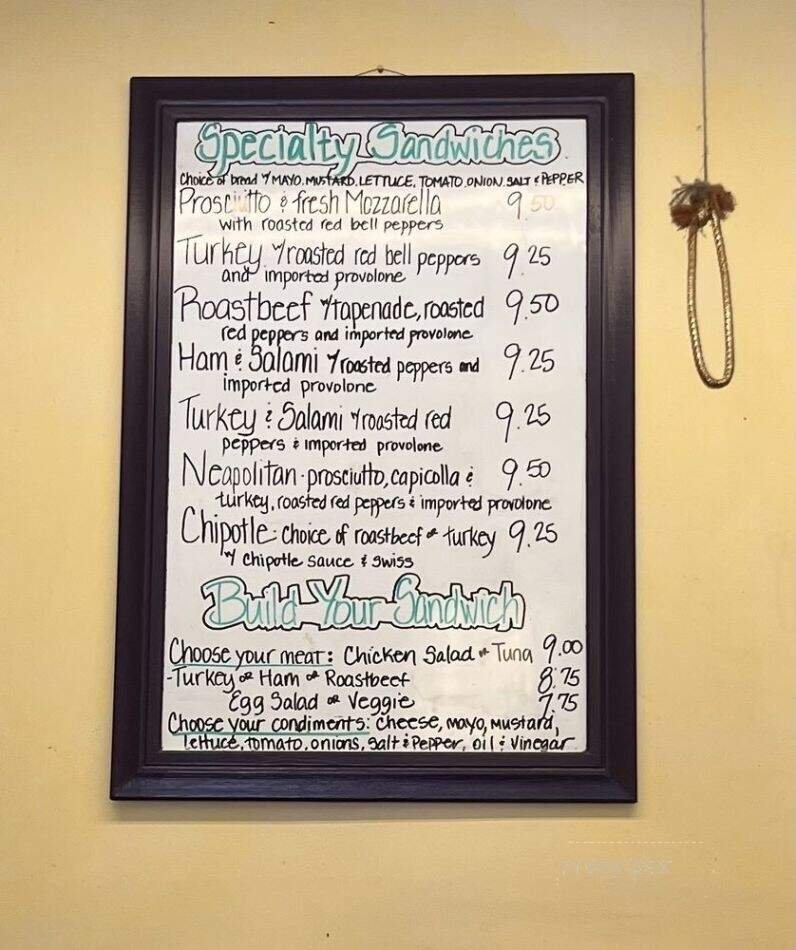 Specialty Sandwiches
Choice of bread w/ MAYO, MUSTARD, LETTUCE, TOMATO, ONION, SALT & PEPPER
Prosciutto & fresh Mozzarella 9.50
with roasted red bell peppers
Turkey w/roasted red bell peppers 9.25
and imported provolone
Roastbeef w/tapenade, roasted 9.50
red peppers and imported provolone
Ham & Salami w/roasted peppers and 9.25
imported provolone
Turkey & Salami w/roasted red 9.25
peppers & imported provolone
Neapolitan - prosciutto, capicolla & 9.50
turkey, roasted red peppers & imported provolone
Chipotle: choice of roastbeef or turkey 9.25
w/ chipotle sauce & swiss
Build Your Sandwich
Choose your meat: Chicken Salad or Tuna 9.00
-Turkey or Ham or Roastbeef 8.75
Egg Salad or Veggie 7.75
Choose your condiments: cheese, mayo, mustard,
lettuce, tomato, onions, salt & pepper, oil & vinegar